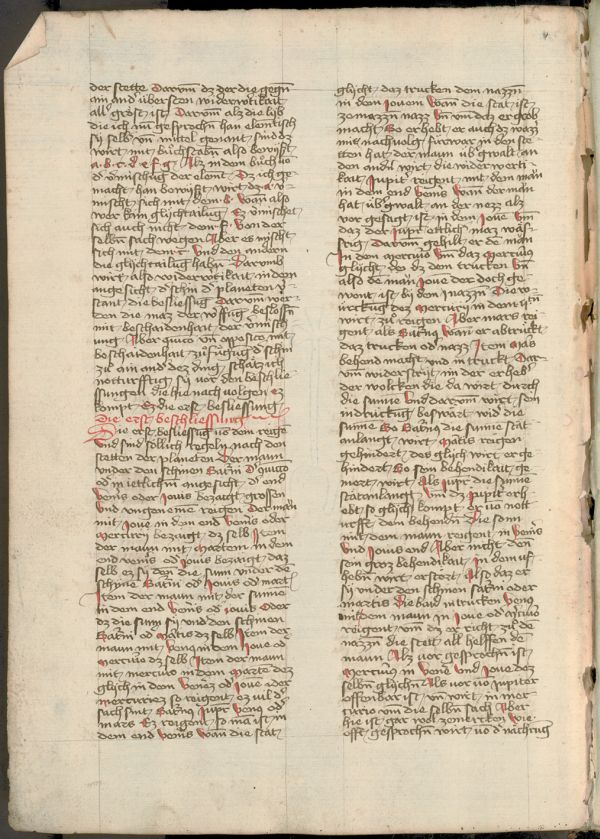 der stette Darum dz der die gegn̄
ain and' übersten widerwtikait
all' gröst ist Darum̄ alz die lyb
die ich nū gesprochn̄ han elemtisch
sy selb vn̄ mittel genant sind dz
wirt mit büchstabn̄ also bewist
a. b. c. d. e. f. g. Alz in dem büch vō
d' v̄mischūg der elomt Dz ich ge
macht han bewist wirt dz a v̄
mischt sich mit dem b. wan̄ also
wer kain glichtailug Ez v̄mischet
sich auch nicht dem f. von der
selbn̄ sach wegen Aber es mischt
sich mit dem c. vnd den andern
die glichtailug habn̄ Darumb
wirt also widerwtikait in dem
angesicht d' schin d' planeten v̄
stant die besliessug Darum wer
den die maz der v̄ffūg besloss̄n
mit beschaidenhait der v̄misch
ung Aber quico vn̄ opposico mit
beschaidenhait zufūgug d' schin
zu ain and' dez ding schatz ich
notturftug sy vor den beschlie
ssungen die hie nach volgen ez
kompt Ez die erst besliessung
Die erst beschliessung
Die erst besliessug vō dem reige
vnd sind föllich regeln nach den
stetten der planeten Der mann
vnder den schinen Sat'ni d' quico
od in ietlichm̄ angesicht d' end
ven'is oder Jouis bezaigt grossen
vnd vngemeine reigen Der man
mit Joue in dem end ven'is oder
Mercurij bezaigt dz selb Item
der mann mit Martem in dem
end ven'is od Jouis bezaigt daz
selb ez sy den die sunn vnder de
schyne Sat'ni od Jouis od mart'
Item der mann mit der sunnē
in dem end ven'is od iouis Oder
dz die sunn sy vnd den schinen
Sat'ni od Mars dz selb Item der
mann mit ven'q in dem Joue od
mercuio dz selb Item der mann
mit mercurio in dem Marte dez
glich in dem venez od Joue oder
mercuriez so reigent ez vil d'
sach sint Sat'ng Jup'r ven'q od'
mars Ez reigent so ma ist in
dem end ven'is wan̄ die stat
glicht daz trucken dem nazzn̄
in dem Jouem wan̄ die stat ist
zemazzn̄ nazz Vn̄ vm̄ daz er grob
macht So erhebt er auch dz wazz
mis nachvolg fürwar in den ste
tten hat der mann üb'gwalt an
den and'n wirt die widerwerti
kait Jupit' reigent mit dem man̄
in dem end ven'is wan̄ der man̄
hat üb'gwalt an der nezz alz
vor gesagt ist in dem Joue vm̄
daz der Jup'r etlich maz wäs
srig Darum̄ gehilt er de' man
In dem mercuio vm̄ daz mercuig
glicht d'v dz dem trucken vn̄
also de man Joue der doch ge
went ist by den inazzn̄ Die w
urckug dez mercurij in dem it'n
wirt zu reigen Aber mars rei
gent als Sat'ng wan̄ er abtruckt
daz trucken od' nazz Item Mas
behend macht vnd in truckt Dar
vm̄ widerstrit in der erheb'
der wolcken die da wirt durch
die sunne vnd darum̄ wirt sein
indruckug beswart wid' die
sunne So Sat'ng die sunne stat
anlangt wirt Mar'is reigen
gehindert des glich wirt er ge
hindert So sein behendikait ge
mert wirt Als Jup'r die sunne
stat anlangt vm̄ dz Jupit' erh
ebt so glich kompt er vō nott
urfft dem behendn̄ Die sonn
mit dem mann reigent in ven'is
vnd Jouis end Aber nicht den
sein groz behendikait in dem uf
hebn̄ wirt erstozt Also daz er
sy vnder den schinen sat'ni oder
martis die baid intrucken ven'q
mit dem mann in Joue od' m'cuio
reigent vm̄ dz er richt zū dē
nazzn̄ die stett all helffen dē
mann Alz vor gesprochn̄ ist
Mercuig in ven'e vnd Joue dez
selbn̄ glichn̄ Als vor vō Jupiter
offenber ist vn̄ wirt in mer
curio vm̄ die selbn̄ sach Aber
hie ist gar wol zemercken wie
offt gesprochn̄ wirt vō d' nachrug